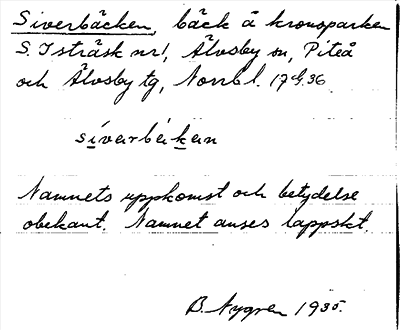 Siverbäcken, bäck å kronoparken
S. Isträsk nr 1, Älvsby sn, Piteå
och Älvsby tg, Norrb l. 17 36
síverbäkan
Namnets uppkomst och betydelse
obekant. Namnet anses lappskt.
B. Nygren 1935.